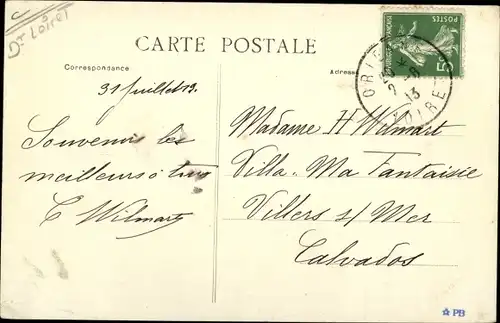 Dt Loiret
CARTE POSTALE
Correspondance
Adresse
POSTES
5c
ORLE
2 - 8
13
LOIRET
31 Juillet 13.
Souvenir les
meilleurs à tous
C Wilmart
Madame H Wilmart
Villa "Ma Fantaisie
Villers s/ Mer
Calvados
PB